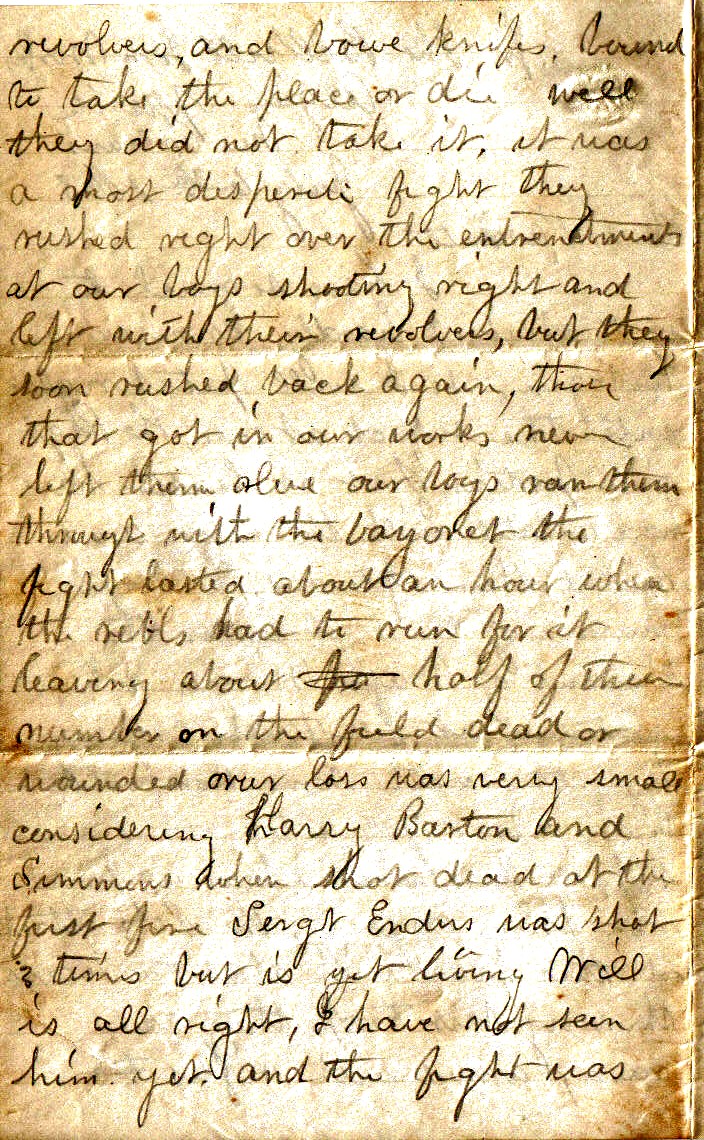 revolvers, and bowe knifes, bound
to take the place or die well
they did not take it, it was
a most desperite fight they
rushed right over the entrenchments
at our boys shooting right and
left with their revolvers, but they
soon rushed back again,
that got in our works never
left them alive our boys ran them
through with the bayonet the
fight lasted about an hour when
the rebls had to run for it
leaving about half of their
number on the field dead or
wounded our loss was very small
considering Harry Barton and
Simmons when shot dead at the
first fire Sergt Enders was shot
3 times but is yet living Will
is all right, I have not seen
him yet. and the fight was